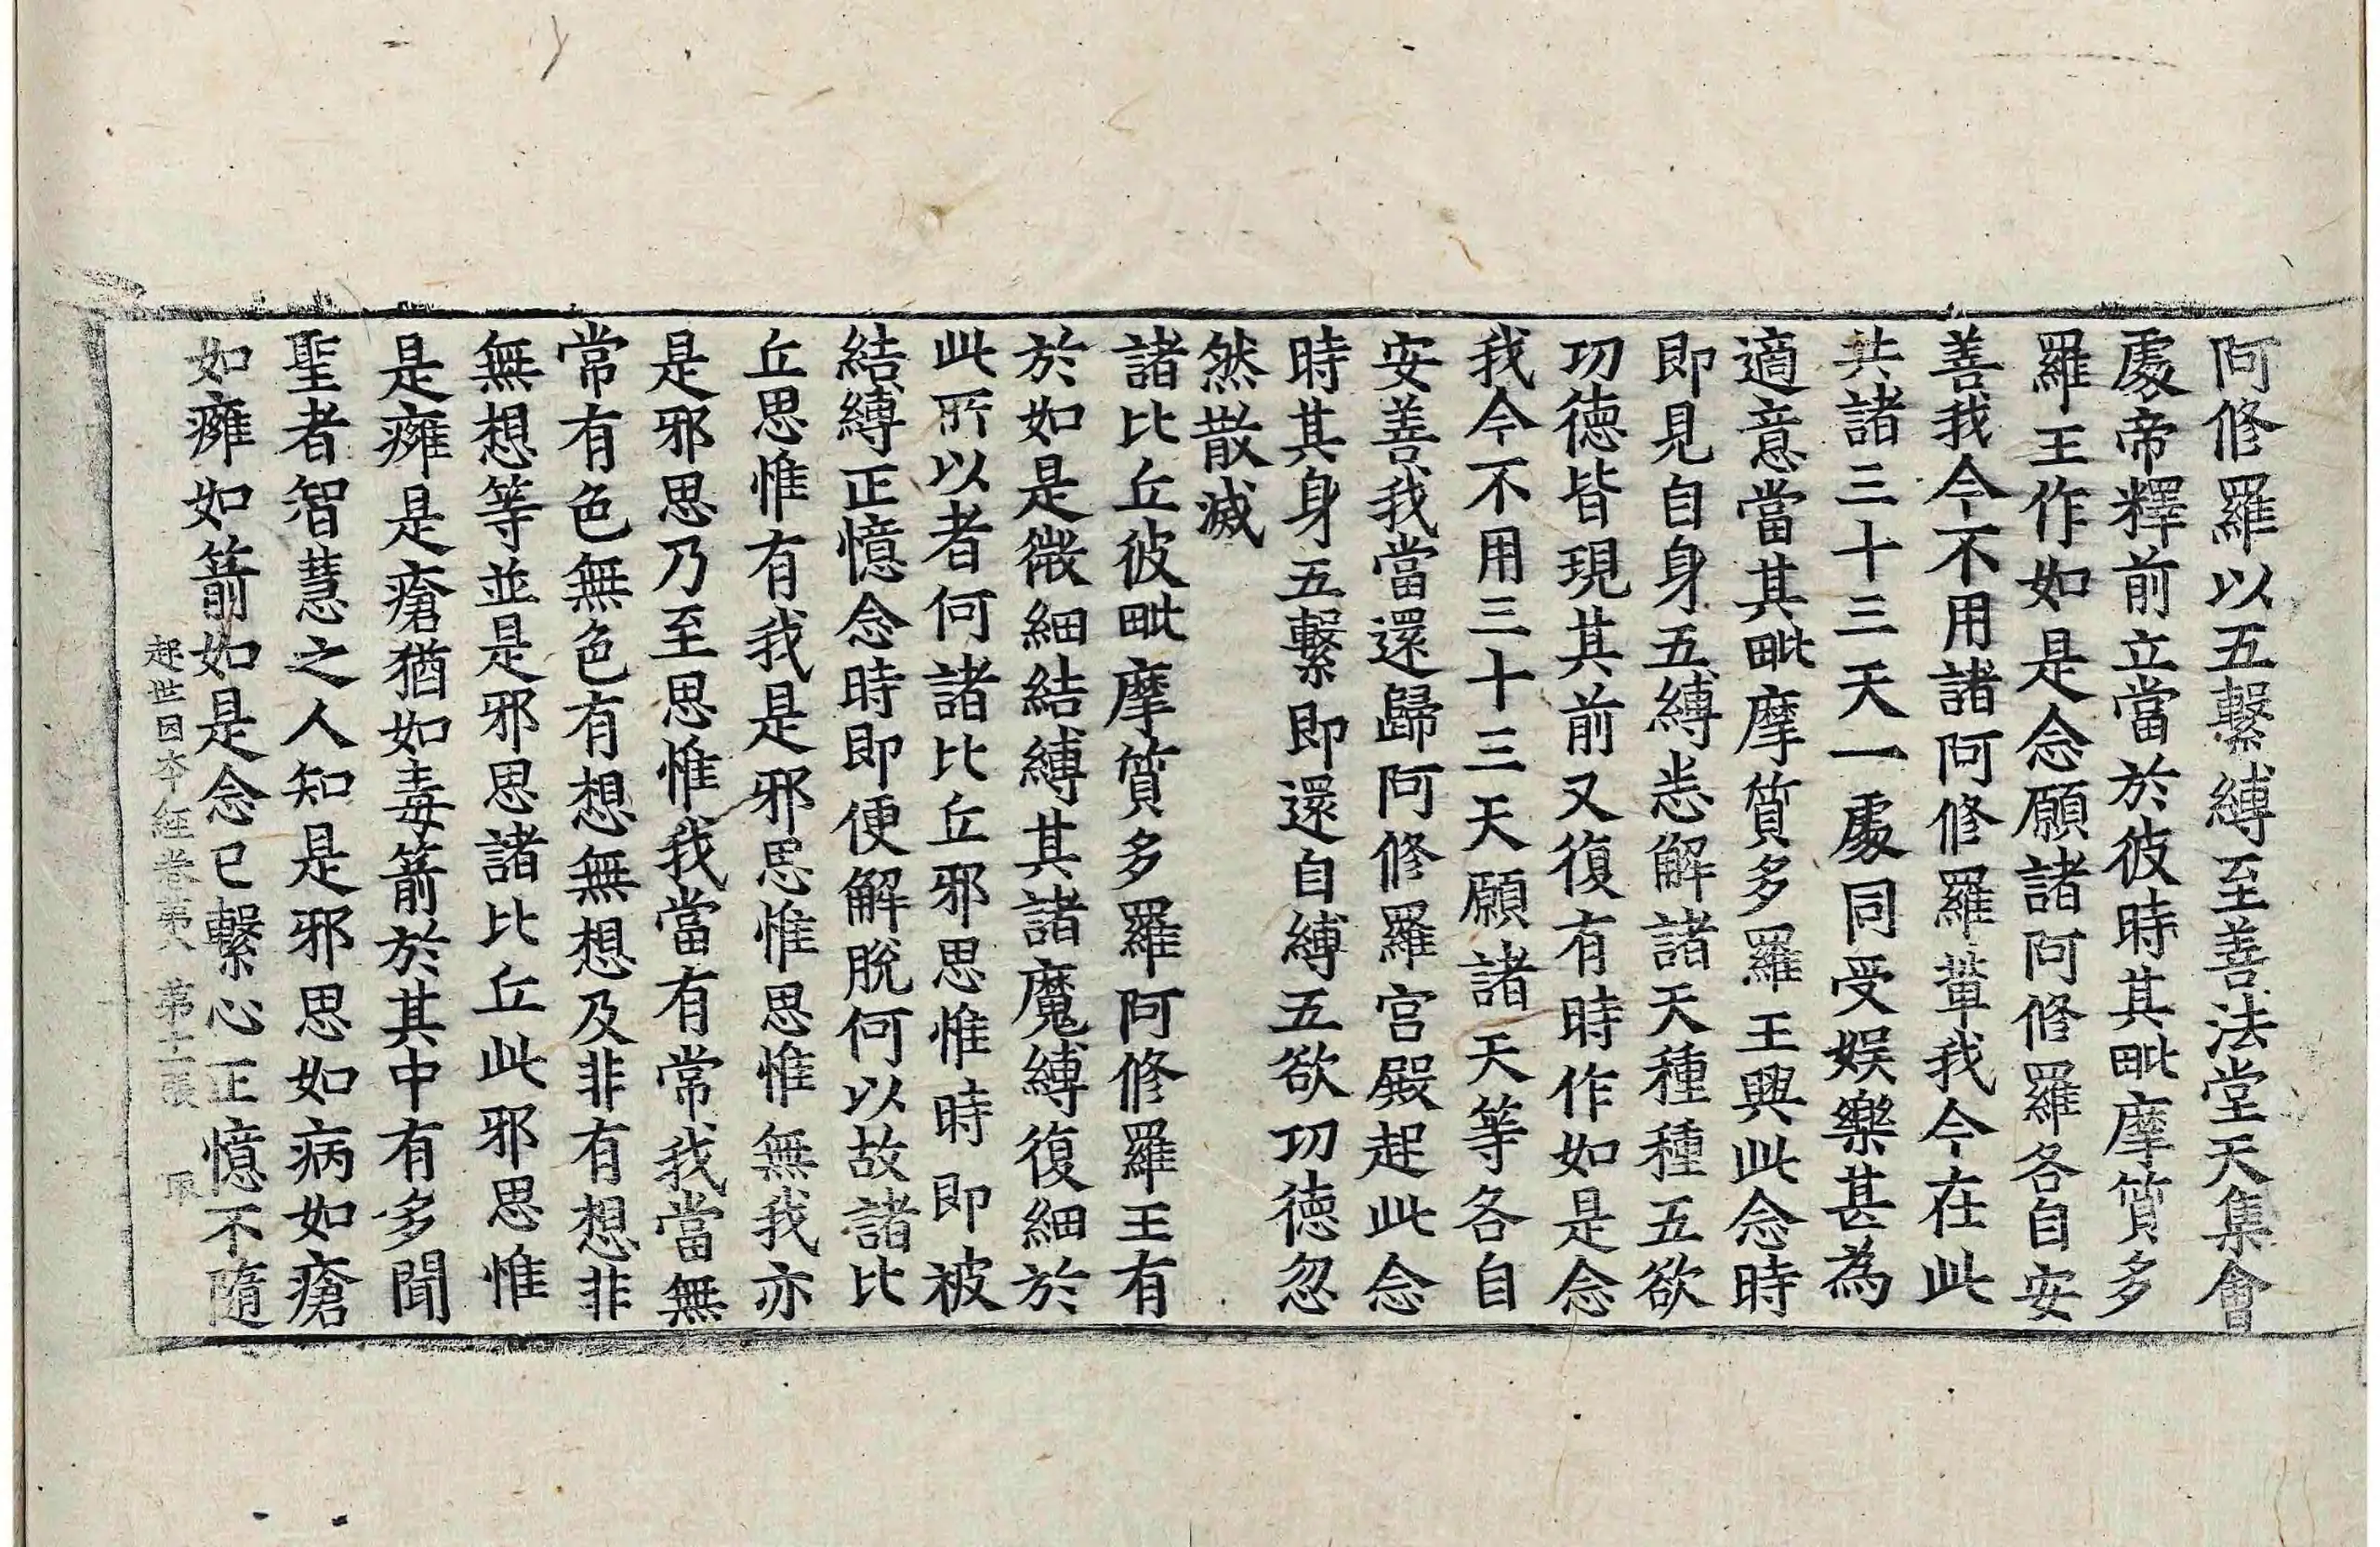 阿修羅以五繫縛至善法堂天集會
處帝釋前立當於彼時其毗摩質多
羅王作如是念願諸阿修羅各自安
善我今不用諸阿修羅輩我今在此
共諸三十三天一處同受娛樂甚為
適意當其毗摩質多羅王興此念時
即見自身五縛悉解諸天種種五欲
功德皆現其前又復有時作如是念
我今不用三十三天願諸天等各自
安善我當還歸阿修羅宮殿起此念
時其身五繫即還自縛五欲功德忽
然散滅
諸比丘彼毗摩質多羅阿修羅王有
於如是微細結縛其諸魔縛復細於
此所以者何諸比丘邪思惟時即被
結縛正憶念時即便解脫何以故諸比
丘思惟有我是邪思惟思惟無我亦
是邪思乃至思惟我當有常我當無
常有色無色有想無想及非有想非
無想等並是邪思諸比丘此邪思惟
是癰是瘡猶如毒箭於其中有多聞
聖者智慧之人知是邪思如病如瘡
如癰如箭如是念已繫心正憶不隨
起世因本經卷第八 第十二張